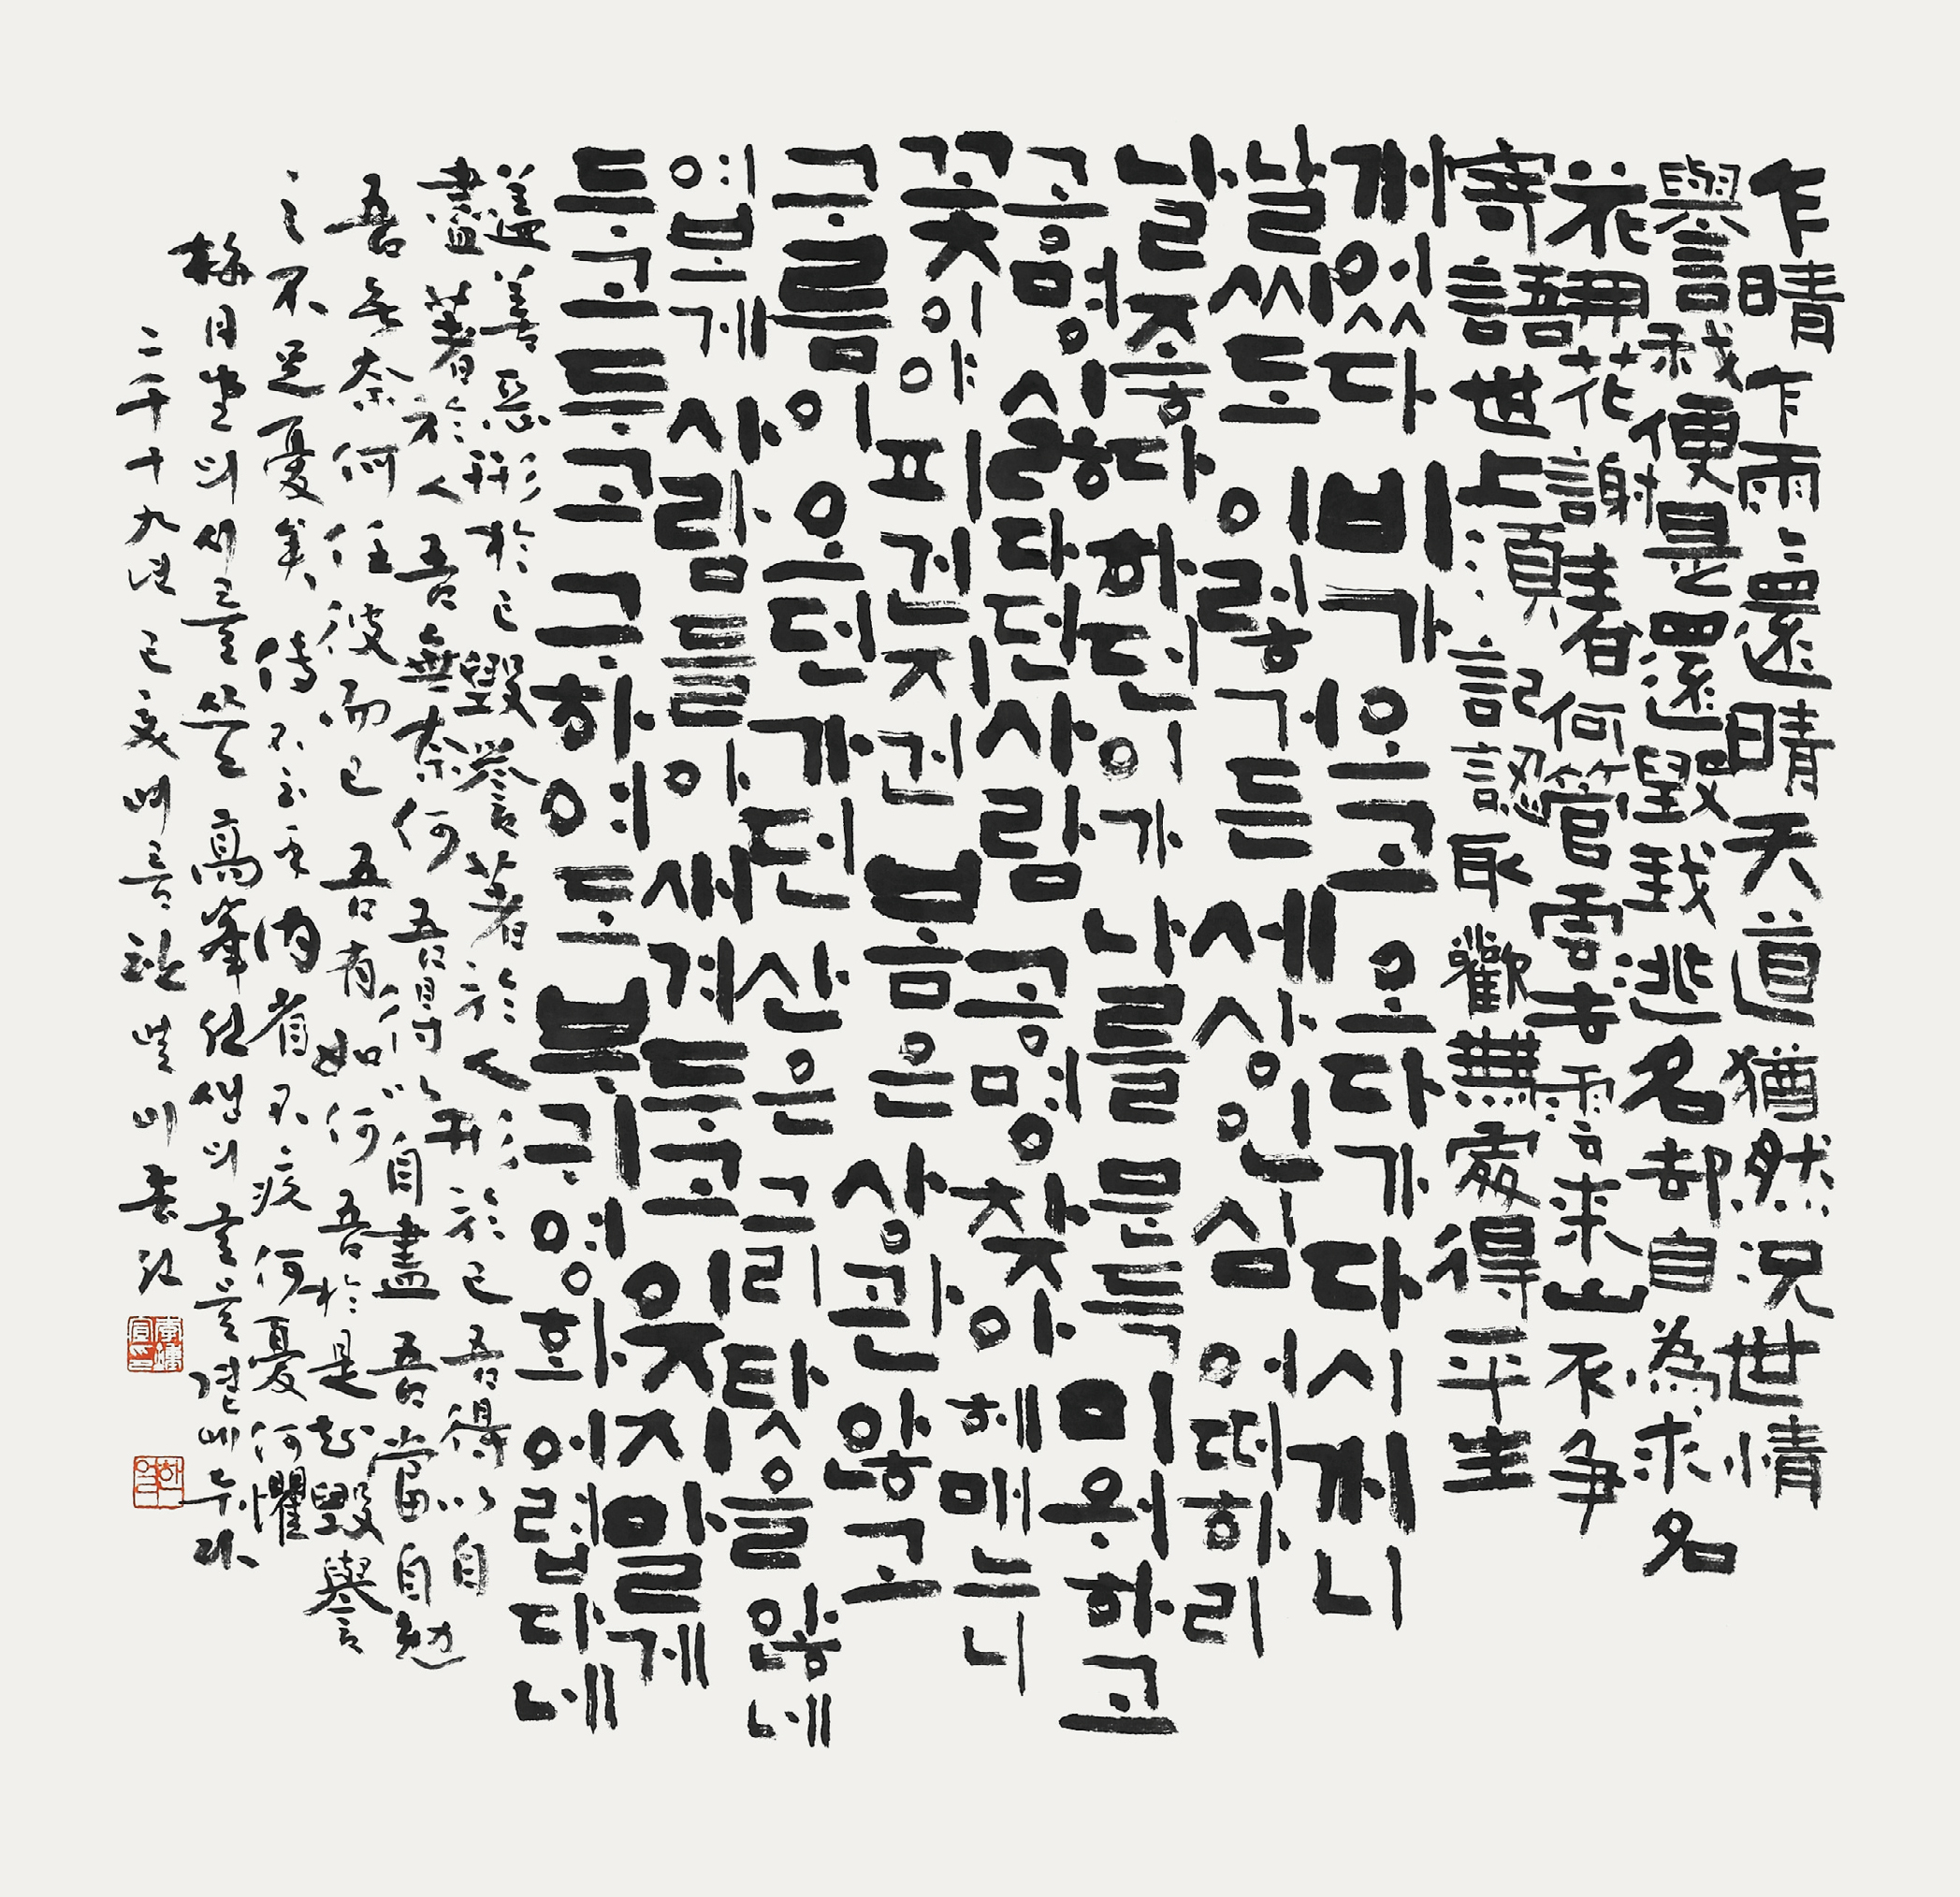 乍晴乍雨ミ還晴天道猶然況世情
譽我便是還毀我逃名却自為求名
花開花謝春何管雲去雲來山不爭
寄語世上須記認取歡無處得平生
깨있다 비가 오고 오다가 다시 깨니
날씨도 이렇거든 세상인심 어떠하리
날 좋다 하던이가 나를 문득 미워하고
공명 싫다던 사람 공명 찾아 헤매느니
꽃이야 피건 지건 봄은 상관 않고
구름이 오던 가던 산은 그리 탓을 않네
여보게 사람들아 새겨 듣고 잊지말게
두고두고 구하여도 부귀영화 어렵다네
盖善惡形於己毀譽著於人形於己吾得以自
盡著於人吾無奈何吾得以自盡吾當自勉
吾無奈何任彼而已吾有如何吾於是知毀譽
之不足憂矣 傳不云乎內省不疚何憂何懼
梅月堂의 시를 쓰고 高峯선생의 글을 곁에 두다
二千十九년 己亥 여름